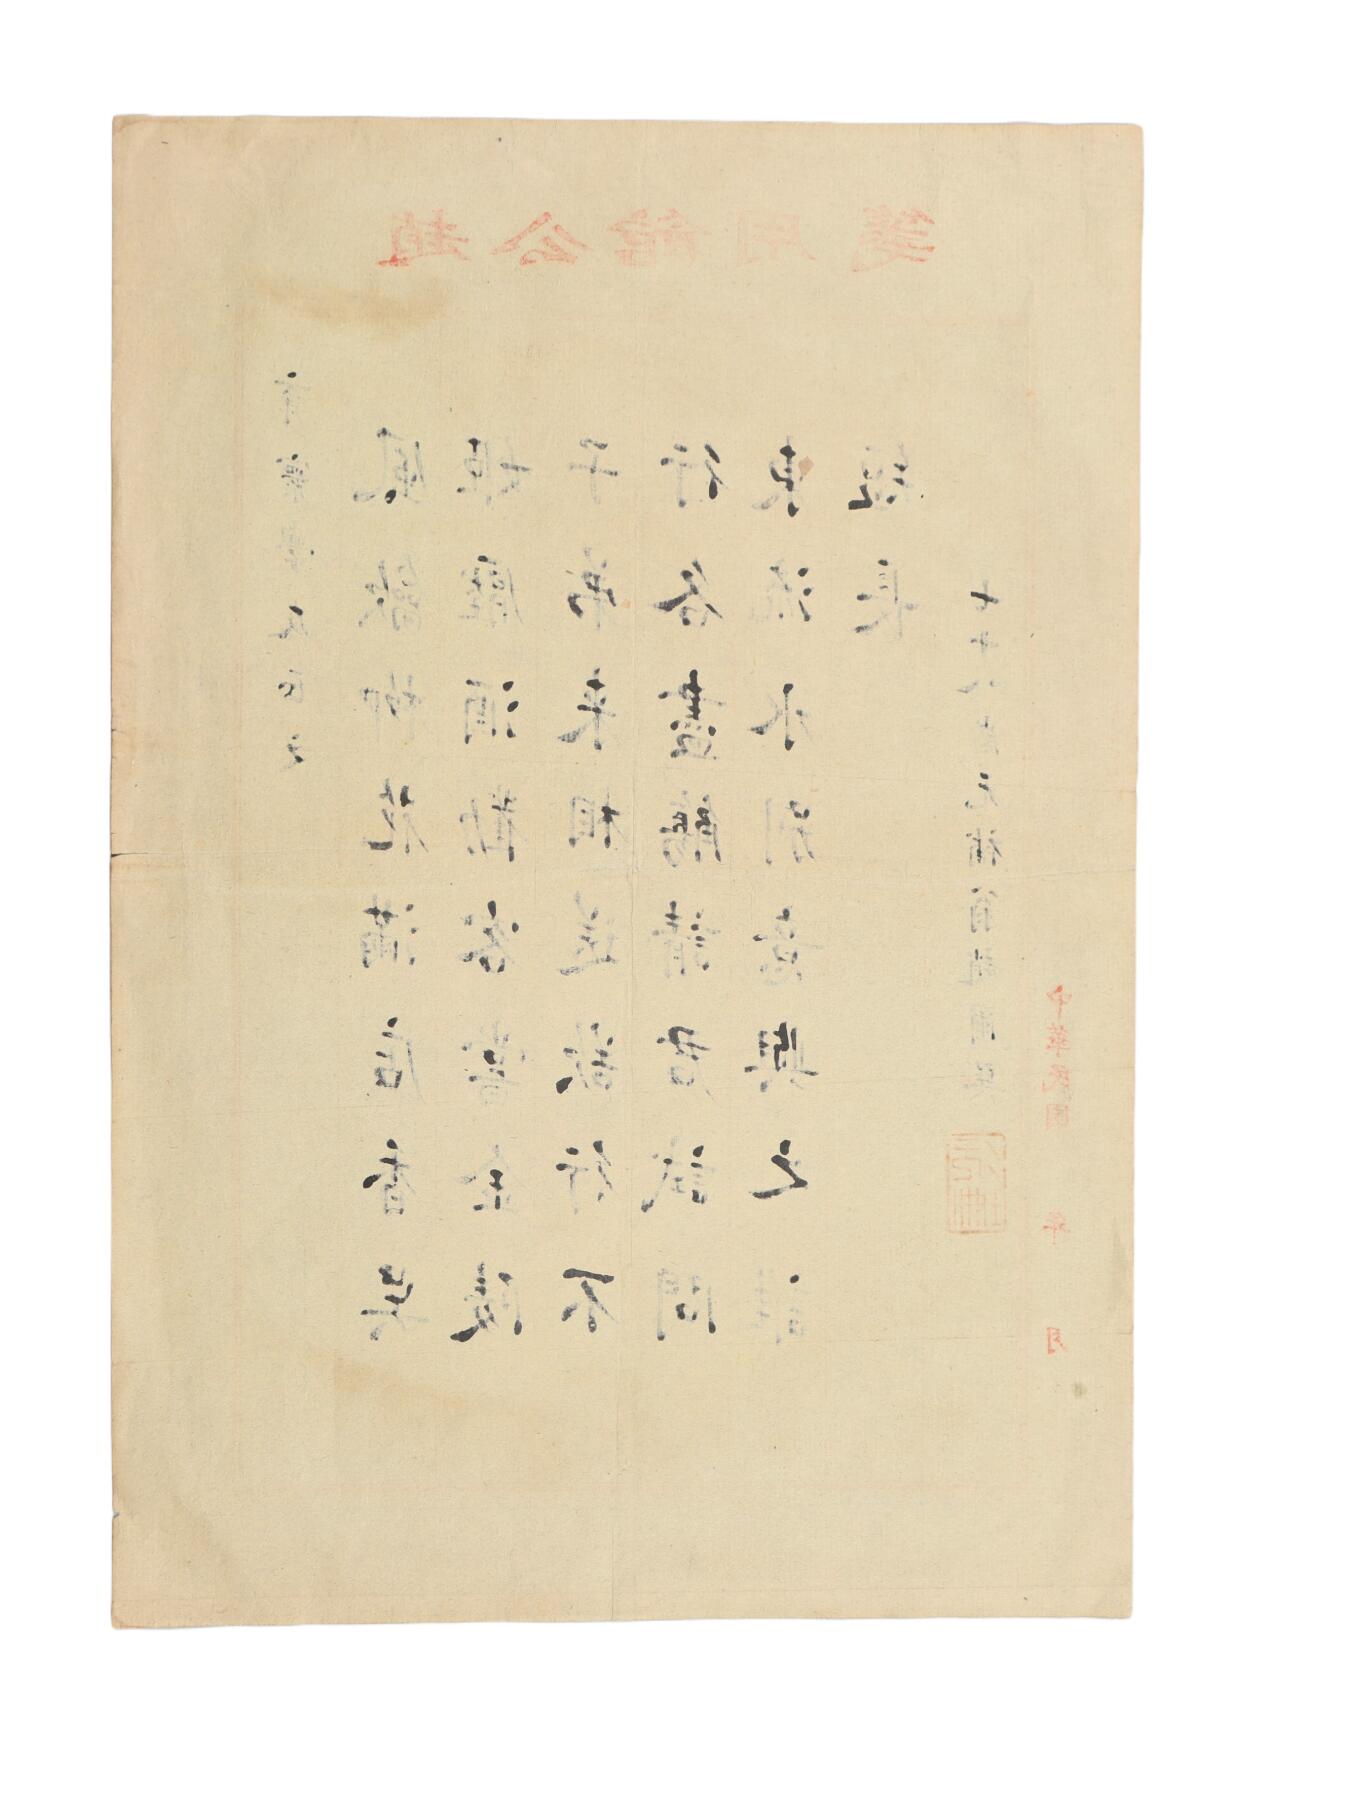 趙公館用箋
風柳花滿店香吳
姬壓酒勸客嘗金陵
子弟來相送欲行不
行各盡觴請君試問
東流水別意與之誰
短長
七十八叟
中華民國 年 月